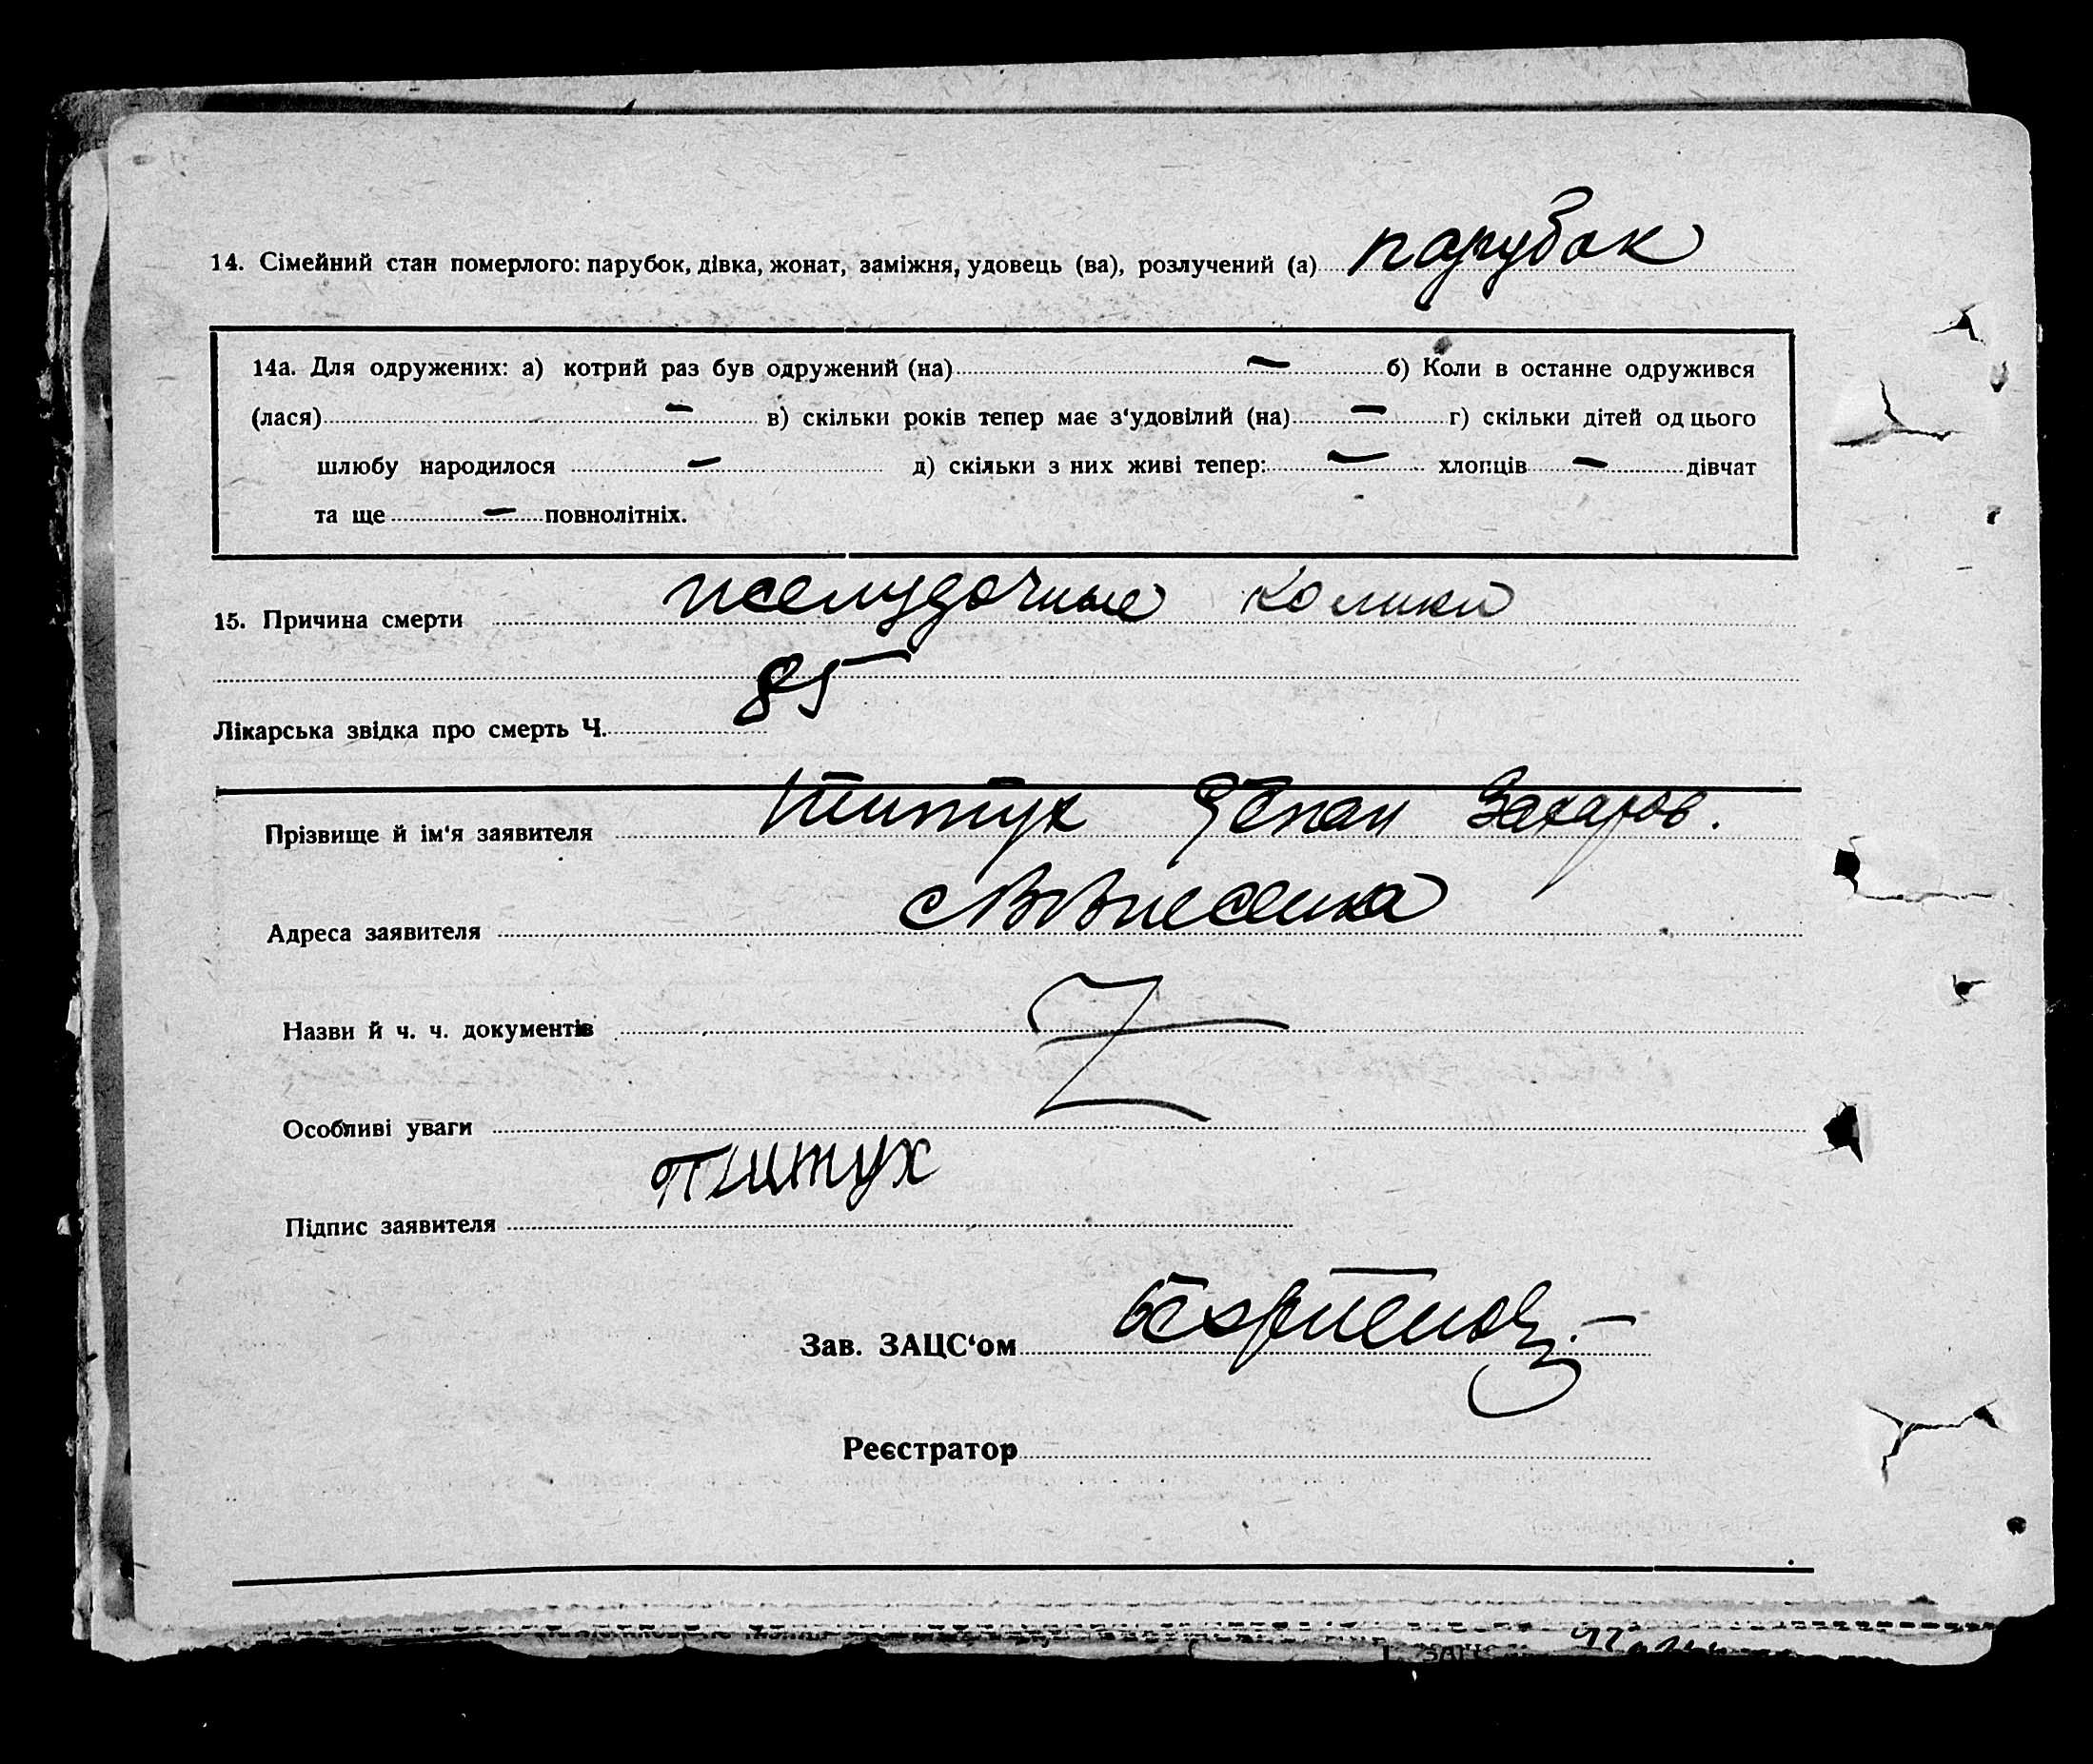 14. Сімейний стан померлого: парубок, дівка, жонат, заміжня, удовець (ва), розлучений (а) парубок
14а. Для одружених: а) котрий раз був одружений (на) — б) Коли в останне одружився
(лася) — в) скільки років тепер має з‘удовілий (на) — г) скільки дітей од цього
шлюбу народилося — д) скільки з них живі тепер: — хлопців — дівчат
та ще — повнолітніх.
15. Причина смерти желудочные колики
85
Лікарська звідка про смерть Ч.
Прізвище й ім‘я заявителя Питух Степан Захаров.
Адреса заявителя
Назви й ч. ч. документів Z
Особливі уваги
Підпис заявителя Питух
Зав. ЗАЦС‘ом
Реєстратор